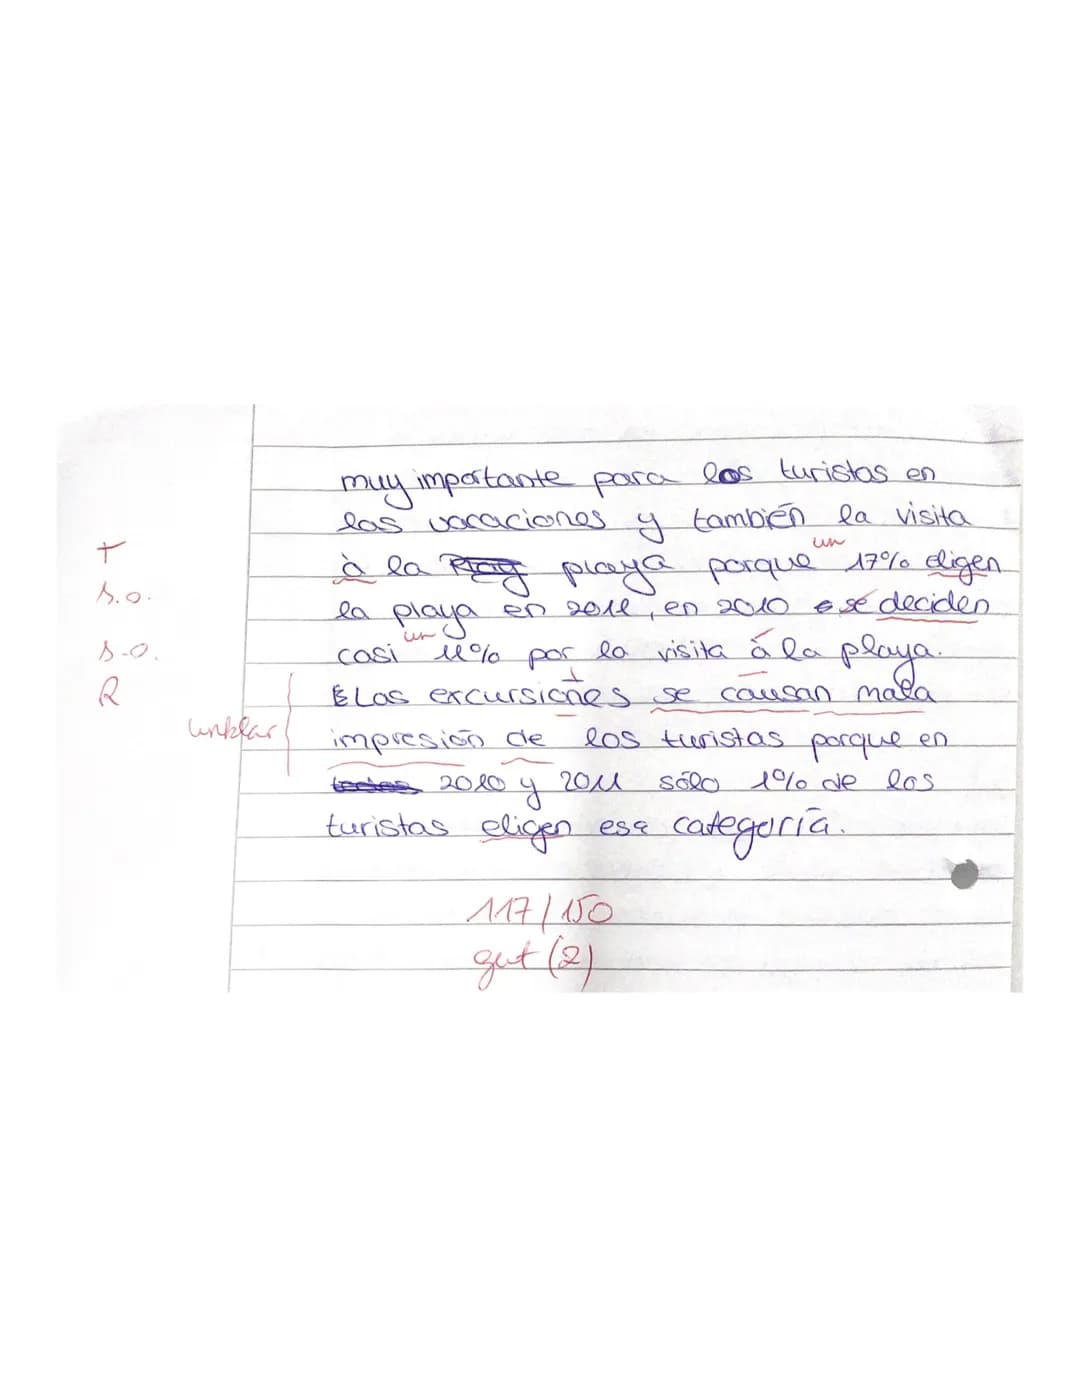 muy importante para los turistas en
las vacaciones y también la visita
+ à la playa porque un 17% eligen
s.o. la playa en 2011, en 2010 se deciden
s.o. casi un 11% por la visita á la playa.
R Las excursiones se causan mala
unklar impresión de los turistas porque en
2010 y 2011 sólo 1% de los
turistas eligen esa categoría.
117/150
gut (2)